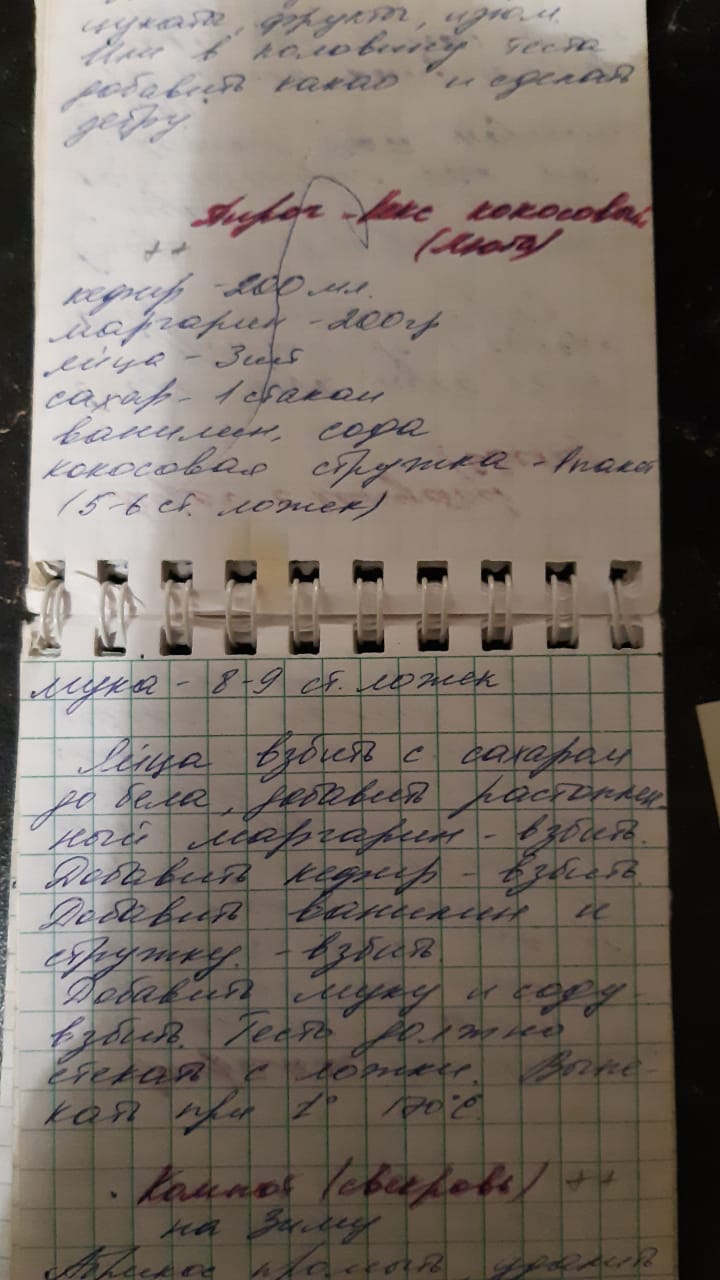 цукаты, фрукты, изюм.
Или в половину теста
добавить какао и сделать
зебру.
Пирог-кекс кокосовый
++
кефир - 200 мл.
маргарин - 200гр
яйца - 3шт
сахар - 1 стакан
ванилин, сода
кокосовая стружка - 1пакет
(5-6 ст. ложек)
мука - 8-9 ст. ложек
Яйца взбить с сахаром
до бела, добавить растоплен-
ный маргарин - взбить.
Добавить кефир - взбить.
Добавить ванилин и
стружку. - взбить.
Добавить муку и соду -
взбить. Тесто должно
стекать с ложки. Выпе-
кать при t° 170°С.
Компот (свекровь) ++
на Зиму
Абрикос промыть, удалить